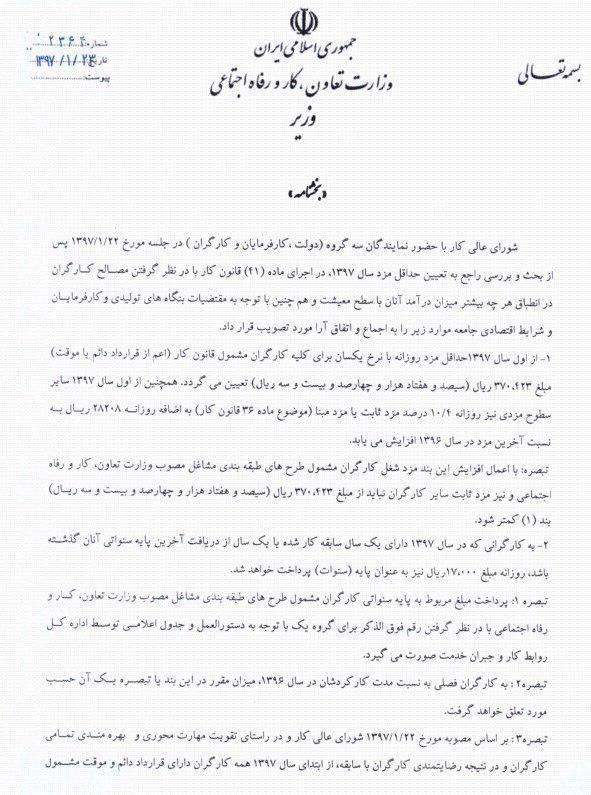 جمهوری اسلامی ایران
وزارت تعاون، کار و رفاه اجتماعی
وزیر
بسمه تعالی
شماره: ۲۳۶۴
تاریخ: ۱۳۹۷/۱/۲۳
پیوست:
«بخشنامه»
شورای عالی کار با حضور نمایندگان سه گروه (دولت ،کارفرمایان و کارگران ) در جلسه مورخ ۱۳۹۷/۱/۲۲ پس
از بحث و بررسی راجع به تعیین حداقل مزد سال ۱۳۹۷، در اجرای ماده (۴۱) قانون کار با در نظر گرفتن مصالح کارگران
در انطباق هر چه بیشتر میزان درآمد آنان با سطح معیشت و هم چنین با توجه به مقتضیات بنگاه های تولیدی و کارفرمایان
و شرایط اقتصادی جامعه موارد زیر را به اجماع و اتفاق آرا مورد تصویب قرار داد.
۱- از اول سال ۱۳۹۷حداقل مزد روزانه با نرخ یکسان برای کلیه کارگران مشمول قانون کار (اعم از قرارداد دائم یا موقت)
مبلغ ۳۷۰،۴۲۳ ریال (سیصد و هفتاد هزار و چهارصد و بیست و سه ریال) تعیین می گردد. همچنین از اول سال ۱۳۹۷ سایر
سطوح مزدی نیز روزانه ۱۰/۴ درصد مزد ثابت یا مزد مبنا (موضوع ماده ۳۶ قانون کار) به اضافه روزانه ۲۸۲۰۸ ریال به
نسبت آخرین مزد در سال ۱۳۹۶ افزایش می یابد.
تبصره: با اعمال افزایش این بند مزد شغل کارگران مشمول طرح های طبقه بندی مشاغل مصوب وزارت تعاون، کار و رفاه
اجتماعی و نیز مزد ثابت سایر کارگران نباید از مبلغ ۳۷۰،۴۲۳ ریال (سیصد و هفتاد هزار و چهارصد و بیست و سه ریال)
بند (۱) کمتر شود.
۲- به کارگرانی که در سال ۱۳۹۷ دارای یک سال سابقه کار شده یا یک سال از دریافت آخرین پایه سنواتی آنان گذشته
باشد، روزانه مبلغ ۱۷،۰۰۰ریال نیز به عنوان پایه (سنوات) پرداخت خواهد شد.
تبصره ۱: پرداخت مبلغ مربوط به پایه سنواتی کارگران مشمول طرح های طبقه بندی مشاغل مصوب وزارت تعاون، کار و
رفاه اجتماعی با در نظر گرفتن رقم فوق الذکر برای گروه یک با توجه به دستورالعمل و جدول اعلامی توسط اداره کل
روابط کار و جبران خدمت صورت می گیرد.
تبصره۲: به کارگران فصلی به نسبت مدت کارکردشان در سال ۱۳۹۶، میزان مقرر در این بند یا تبصره یک آن حسب
مورد تعلق خواهد گرفت.
تبصره۳: بر اساس مصوبه مورخ ۱۳۹۷/۱/۲۲ شورای عالی کار و در راستای تقویت مهارت محوری و بهره مندی تمامی
کارگران و در نتیجه رضایتمندی کارگران با سابقه، از ابتدای سال ۱۳۹۷ همه کارگران دارای قرارداد دائم و موقت مشمول